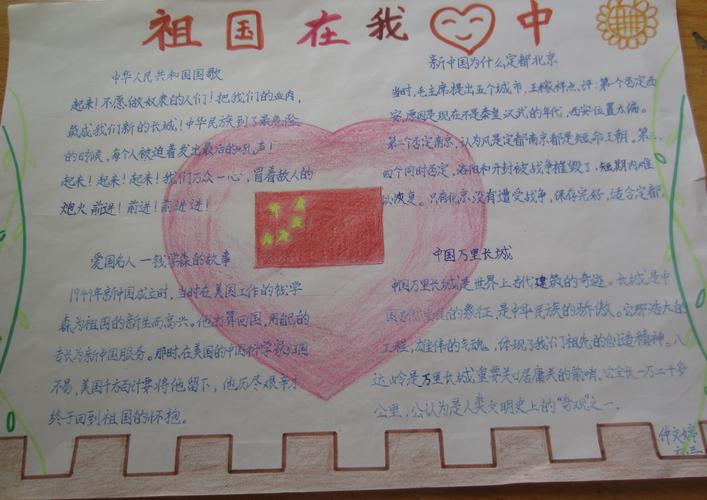 祖国在我心中
中华人民共和国国歌
起来!不愿做奴隶的人们!把我们的血肉,
筑成我们新的长城!中华民族到了最危险
的时候,每个人被迫着发出最后的吼声!
起来!起来!起来!我们万众一心,冒着敌人的
炮火前进!前进!前进进!
爱国名人—钱学森的故事
1949年新中国成立时,当时在美国工作的钱学
森为祖国的新生而高兴。他打算回国,用自己的
专长为新中国服务。那时,在美国的中国科学家归国
不易,美国千方百计要将他留下,他历尽艰辛才
终于回到祖国的怀抱。
新中国为什么定都北京
当时,毛主席提出五个城市,王稼祥点评:第一个否定西
安,原因是现在不是秦皇汉武的年代,西安位置太偏。
第二个否定南京,认为凡是定都南京都是短命王朝,第三、
四个同时否定,洛阳和开封被战争摧毁了,短期内难
以恢复。只有北京,没有遭受战争,保存完好,适合定都。
中国万里长城
中国万里长城是世界上古代建筑的奇迹。长城是中
国的象征,是中华民族的骄傲。它那浩大的
工程,雄伟的气魄,体现了我们祖先的创造精神。八
达岭是万里长城重要关口居庸关的前哨。它全长一万二千多
公里,公认为是人类文明史上的“奇观”之一。
仲文婷
六.三